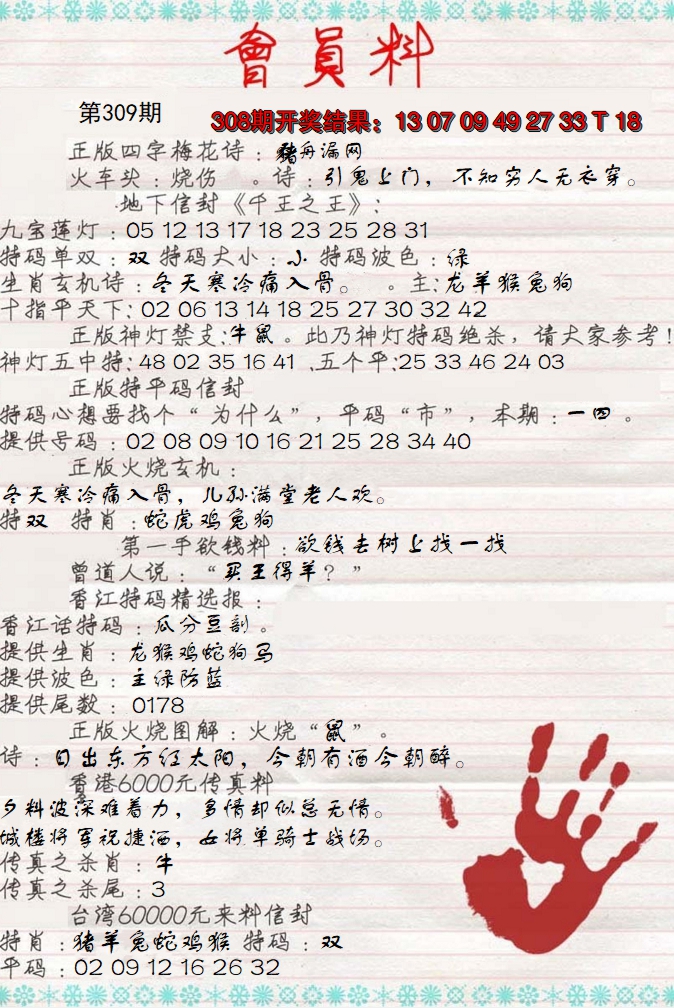 會員料
第309期
308期开奖结果：13 07 09 49 27 33 T 18
正版四字梅花诗：猪舟漏网
火车头：烧伤 。诗：引鬼上门，不知穷人无衣穿。
地下信封《千王之王》：
九宝莲灯：05 12 13 17 18 23 25 28 31
特码单双：双 特码大小：小 特码波色：绿
生肖玄机诗：冬天寒冷痛入骨。 。主:龙羊猴兔狗
十指平天下: 02 06 13 14 18 25 27 30 32 42
正版神灯禁支:牛鼠。此乃神灯特码绝杀，请大家参考！
神灯五中特: 48 02 35 16 41 、五个平:25 33 46 24 03
正版特平码信封
特码心想要找个“为什么”，平码“市”，本期：一四。
提供号码：02 08 09 10 16 21 25 28 34 40
正版火烧玄机：
冬天寒冷痛入骨，儿孙满堂老人欢。
特双 特肖：蛇虎鸡兔狗
第一手欲钱料：欲钱去树上找一找
曾道人说：“买王得羊？”
香江特码精选报：
香江话特码：瓜分豆剖。
提供生肖：龙猴鸡蛇狗马
提供波色：主绿防蓝
提供尾数：0178
正版火烧图解：火烧“鼠”。
诗：日出东方红太阳，今朝有酒今朝醉。
香港6000元传真料
夕料波深难着力，多情却似总无情。
城楼将军祝捷酒，女将单骑士战场。
传真之杀肖：牛
传真之杀尾：3
台湾60000元来料信封
特肖：猪羊兔蛇鸡猴 特码：双
平码：02 09 12 16 26 32